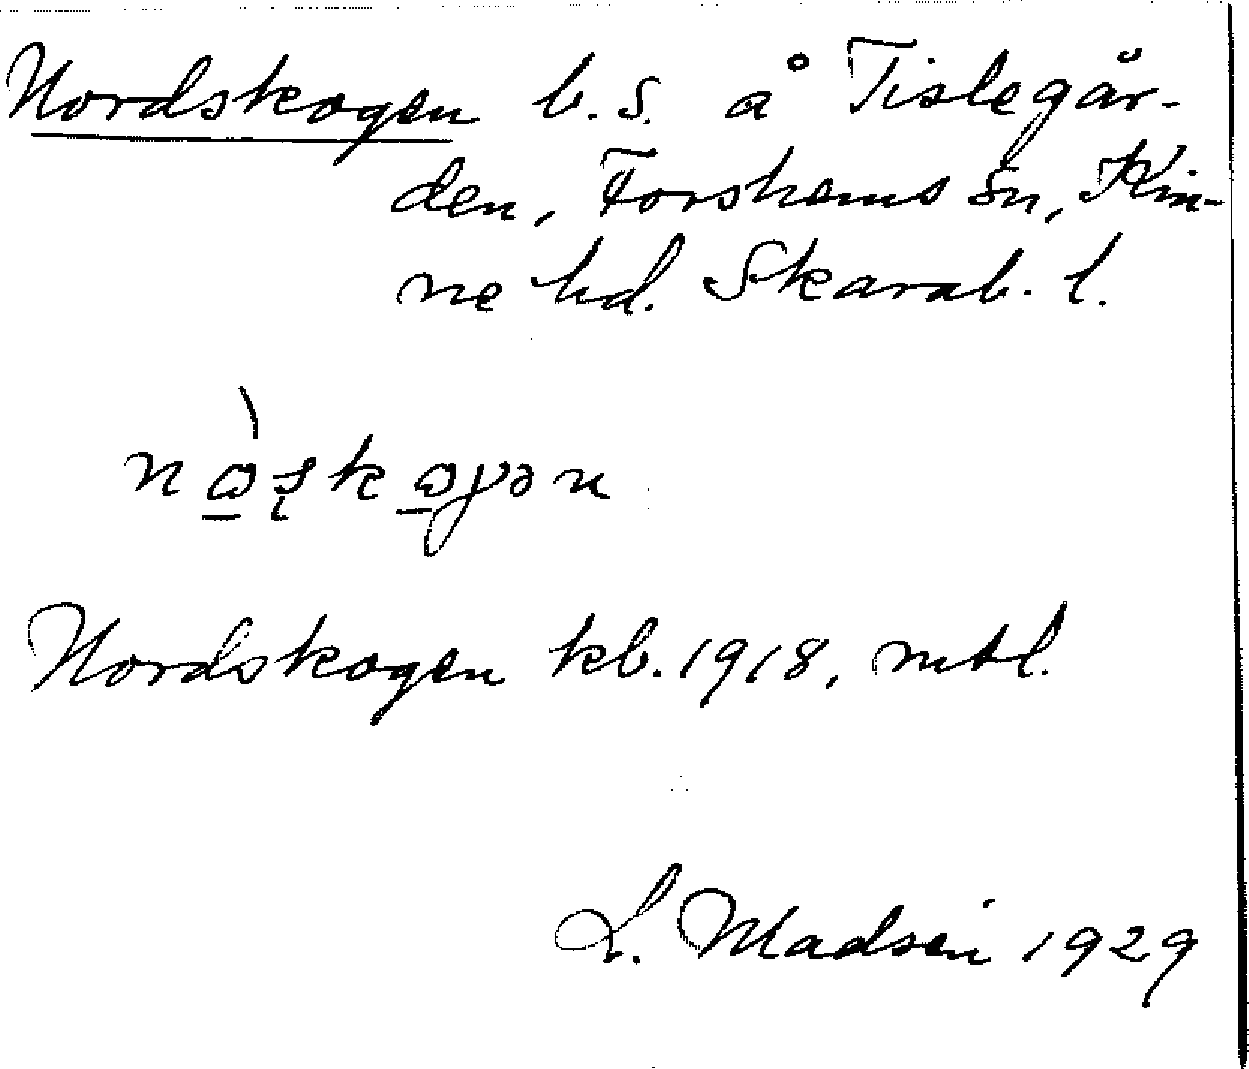 Nordskogen b. s. å Tislegår-
den, Forshems sn, Kin-
ne hd. Skarab. l.
Nordskogen kb. 1918, mtl.
L. Madsén 1929